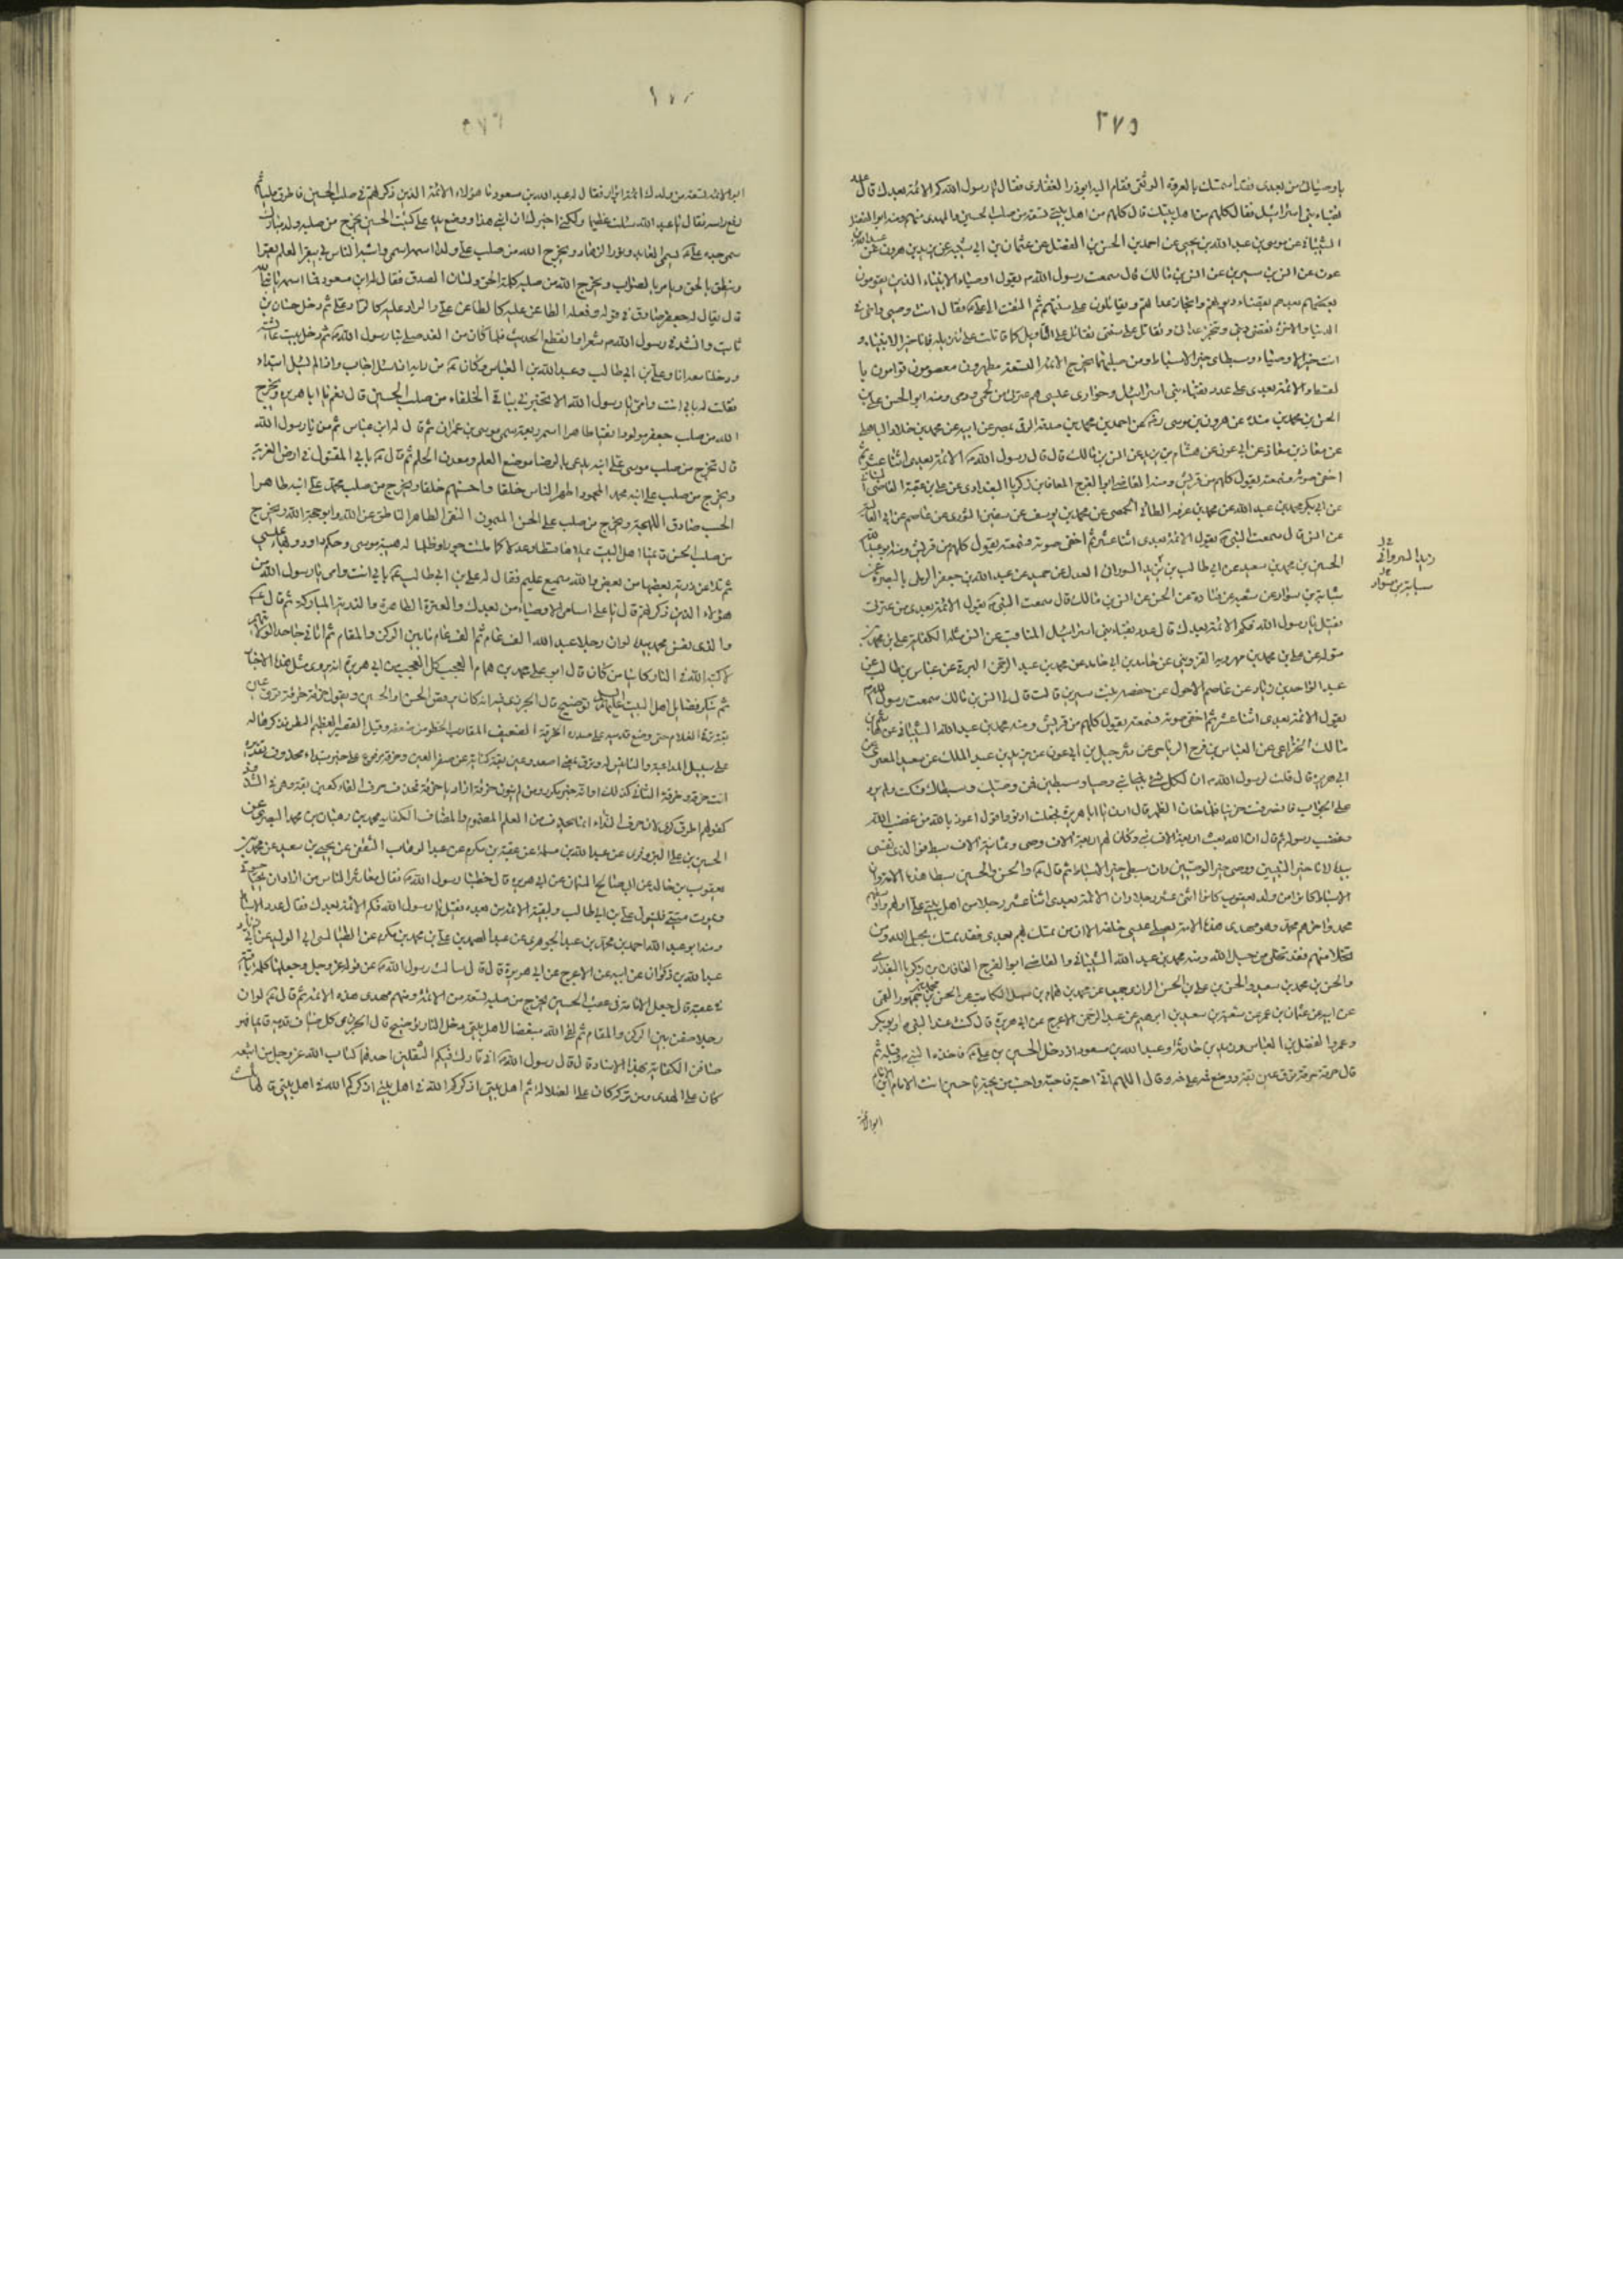 ٢٧٥
باوصيائك من بعدى فقد استمسك بالعروة الوثقى فقام اليه ابو ذر الغفارى فقال يا رسول الله كم الائمة بعدك قال عدد
نقباء بنى اسرائيل فقال كلهم من اهل بيتك قال كلهم من اهل بيتى تسعة من صلب الحسين والمهدى منهم ومنه ابو المفضل
الشيبانى عن موسى بن عبد الله بن يحيى عن احمد بن الحسن بن الفضل عن عثمان بن ابى شيبة عن يزيد بن هرون عن
عون عن انس بن سيرين عن انس بن مالك قال سمعت رسول الله يقول اوصياء الانبياء الذين يقومون
بعدهم بقضاء ديونهم وانجاز عداتهم ويقاتلون على سنتهم ثم التفت الى على فقال انت وصيى واخى فى
الدنيا والاخرة تقضى دينى وتنجز عداتى وتقاتل على سنتى تقاتل على التاويل كما قاتلت على تنزيله فانا خير الانبياء و
انت خير الاوصياء وسبطاى خير الاسباط ومن صلبهما تخرج الائمة التسعة مطهرون معصومون قوامون با
لقسط والائمة بعدى على عدد نقباء بنى اسرائيل وحوارى عيسى هم عترتى من لحمى ودمى ومنه ابو الحسن على بن
الحسن بن محمد بن منده عن هرون بن موسى عن احمد بن محمد بن صدقة الرقى بمصر عن ابيه عن محمد بن خلاد الباهلى
عن معاذ بن معاذ عن ابن عون عن هشام بن زيد عن انس بن مالك قال قال رسول الله الائمة بعدى اثنا عشر ثم
اخفى صوته فسمعته يقول كلهم من قريش ومنه القاضى ابو الفرج المعافا بن زكريا البغدادى عن على بن عتبة القاضى
عن ابى بكر محمد بن عبد الله عن محمد بن عرفه الطائى الحمصى عن محمد بن يوسف عن سفين الثورى عن عاصم عن ابى العالية
عن انس قال سمعت النبى يقول الائمة بعدى اثنا عشر ثم اخفى صوته فسمعته يقول كلهم من قريش ومنه ابو عبد الله
الحسين بن محمد بن سعيد عن ابى طالب بن زيد السورانى العدل عن حميد عن عبد الله بن جعفر الرملى بالبصرة عن
شبابة بن سوار عن شعبة عن قتادة عن الحسن عن انس بن مالك قال سمعت النبى يقول الائمة بعدى من عترتى
فقيل يا رسول الله فكم الائمة بعدك قال عدد نقباء بنى اسرائيل المناقب عن انس مثله الكفاية على بن محمد بن
متوله عن على بن محمد بن مهرويه القزوينى عن خالد بن ابى خالد عن محمد بن عبد الرحمن البرية عن عباس بن طالب عن
عبد الواحد بن زياد عن عاصم الاحول عن حفصة بنت سيرين قالت قال لى انس بن مالك سمعت رسول الله
يقول الائمة بعدى اثنا عشر ثم اخفى صوته فسمعته يقول كلهم من قريش ومنه محمد بن عبد الله الشيبانى عن
مالك الخزاعى عن العباس بن فرج الرياحى عن شرحبيل بن ابى عون عن يزيد بن عبد الملك عن سعيد المقبرى عن
ابى هريرة قال قلت لرسول الله ان لكل نبى وصيا وسبطين فمن وصيك وسبطاك فسكت ولم يرد
على الجواب فانصرفت حزينا فلما حان الظهر قال ادن يا ابا هريرة فجعلت ادنو واقول اعوذ بالله من غضب الله
وغضب رسوله ثم قال ان الله بعث اربعة الاف نبى وكان لهم اربعة الاف وصى وثمانية الاف سبط فوالذى نفسى
بيده لانا خير النبيين ووصيى خير الوصيين وان سبطى خير الاسباط ثم قال والحسن والحسين سبطا هذه الامة وان
الاسباط كانوا من ولد يعقوب كانوا اثنى عشر رجلا وان الائمة بعدى اثنا عشر رجلا من اهل بيتى على اولهم واوسطهم
محمد واخرهم محمد وهو مهدى هذه الامة يصلى عيسى خلفه الا ان من تمسك بهم بعدى فقد تمسك بحبل الله ومن
تخلى منهم فقد تخلى من حبل الله ومنه محمد بن عبد الله الشيبانى والقاضى ابو الفرج المعافا بن زكريا البغدادى
والحسن بن محمد بن سعيد والحسن بن على بن الحسن الرازى جميعا عن محمد بن همام بن سهيل الكاتب عن الحسن بن محمد بن جمهور العمى
عن ابيه عن عثمان بن عمر عن شعبة بن سعيد بن ابرهيم عن عبد الرحمن الاعرج عن ابى هريرة قال كنت عند النبى وابو بكر
وعمر والفضل بن العباس وزيد بن حارثة وعبد الله بن مسعود اذ دخل الحسين بن على فاخذه النبى وقبله ثم
قال حزقة حزقة ترق عين بقة ووضع فمه على فمه وقال اللهم انى احبه فاحبه واحب من يحبه يا حسين انت الامام ابن الامام
ابو الائمة
سبابة بن سوار
ابو الائمة تسعة من ولدك ائمة ابرار فقال له عبد الله بن مسعود ما هؤلاء الائمة الذين ذكرتهم فى صلب الحسين فاطرق مليا ثم
رفع راسه فقال يا عبد الله سئلت عظيما ولكنى اخبرك ان ابنى هذا ووضع يده على كتف الحسين يخرج من صلبه ولد مبارك
سمى جده على يسمى العابد ونور الزهاد ويخرج الله من صلب على ولدا اسمه اسمى واشبه الناس بى يبقر العلم بقرا
وينطق بالحق ويامر بالصواب ويخرج الله من صلبه كلمة الحق ولسان الصدق فقال له ابن مسعود فما اسمه يا نبى الله
قال يقال له جعفر صادق فى قوله وفعله الطاعن عليه كالطاعن على والراد عليه كالراد على ثم دخل حسان بن
ثابت وانشد فى رسول الله شعرا وانقطع الحديث فلما كان من الغد صلى بنا رسول الله ثم دخل بيت عائشة
ودخلنا معه انا وعلى بن ابى طالب وعبد الله بن العباس وكان من دابه اذا سئل اجاب واذا لم يسئل ابتداء
فقلت له بابى انت وامى يا رسول الله الا تخبرنى بباقى الخلفاء من صلب الحسين قال نعم يا ابا هريرة ويخرج
الله من صلب جعفر مولودا نقيا طاهرا اسمر ربعة سمى موسى بن عمران ثم قال له ابن عباس ثم من يا رسول الله
قال يخرج من صلب موسى على ابنه يدعى بالرضا موضع العلم ومعدن الحلم ثم قال بابى المقتول فى ارض الغربة
ويخرج من صلب على ابنه محمد المحمود اطهر الناس خلقا واحسنهم خلقا ويخرج من صلب محمد على ابنه طاهر
الحسب صادق اللهجة ويخرج من صلب على الحسن الميمون النقى الطاهر الناطق عن الله وابو حجة الله ويخرج
من صلب الحسن قائمنا اهل البيت يملاها قسطا وعدلا كما ملئت جورا وظلما له هيبة موسى وحكم داود وبهاء عيسى
ثم تلا ذرية بعضها من بعض والله سميع عليم فقال له على بن ابى طالب بابى انت وامى يا رسول الله من
هؤلاء الذين ذكرتهم قال يا على اسامى الاوصياء من بعدك والعترة الطاهرة والذرية المباركة ثم قال
والذى نفس محمد بيده لو ان رجلا عبد الله الف عام ثم الف عام ما بين الركن والمقام ثم اتانى جاحدا لولايتهم
لاكبه الله فى النار كائنا من كان قال ابو على محمد بن همام العجب كل العجب من ابى هريرة انه يروى مثل هذه الاخبار
ثم ينكر فضايل اهل البيت عليهم السلم توضيح قال الجزرى فيه انه كان يرقص الحسن او الحسين ويقول حزقة حزقة ترق عين
بقة فترقى الغلام حتى وضع قدميه على صدره الحزقة الضعيف المقارب الخطو من ضعفه وقيل القصير العظيم البطن فذكرها له
على سبيل المداعبة والتانيس له وترق بمعنى اصعد وعين بقة كناية عن صغر العين وحزقة مرفوع على خبر مبتداء محذوف تقديره
انت حزقة وحزقة الثانى كذلك او انه خبر مكرر ومن لم ينون حزقة اراد يا حزقة فحذف حرف النداء
كقولهم اطرق كرى لان حرف النداء انما يحذف من العلم المضموم والمضاف الكفاية محمد بن وهبان بن محمد البصرى عن
الحسين بن على البزوفرى عن عبد الله بن مسلمة عن عقبة بن مكرم عن عبد الوهاب الثقفى عن يحيى بن سعيد عن محمد بن
يعقوب بن خالد عن ابى صالح السمان عن ابى هريرة قال خطبنا رسول الله فقال معاشر الناس من اراد ان يحيى حيوتى
ويموت ميتتى فليتول على بن ابى طالب وليقتد بالائمة من بعده فقيل يا رسول الله فكم الائمة بعدك فقال عدد الاسباط
ومنه ابو عبد الله احمد بن محمد بن عبد الجوهرى عن عبد الصمد بن على بن محمد بن مكرم عن الطيالسى ابى الوليد عن ابى الزناد
عبد الله بن ذكوان عن ابيه عن الاعرج عن ابى هريرة قال قال سالت رسول الله عن قوله عز وجل وجعلها كلمة باقية
فى عقبه قال جعل الامامة فى عقب الحسين يخرج من صلبه تسعة من الائمة ومنهم مهدى هذه الامة ثم قال لو ان
رجلا صفن بين الركن والمقام ثم لقى الله مبغضا لاهل بيتى دخل النار توضيح قال الجزرى كل صاف قدميه قائما فهو
صافن الكفاية بهذا الاسناد قال قال رسول الله انى تارك فيكم الثقلين احدهما كتاب الله عز وجل من اتبعه
كان على الهدى ومن تركه كان على الضلالة ثم اهل بيتى اذكركم الله فى اهل بيتى اذكركم الله فى اهل بيتى